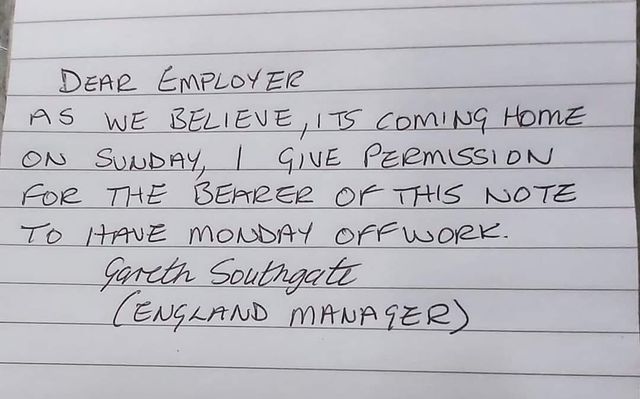 DEAR EMPLOYER
AS WE BELIEVE, ITS COMING HOME
ON SUNDAY, I GIVE PERMISSION
FOR THE BEARER OF THIS NOTE
TO HAVE MONDAY OFF WORK.
Gareth Southgate
(ENGLAND MANAGER)